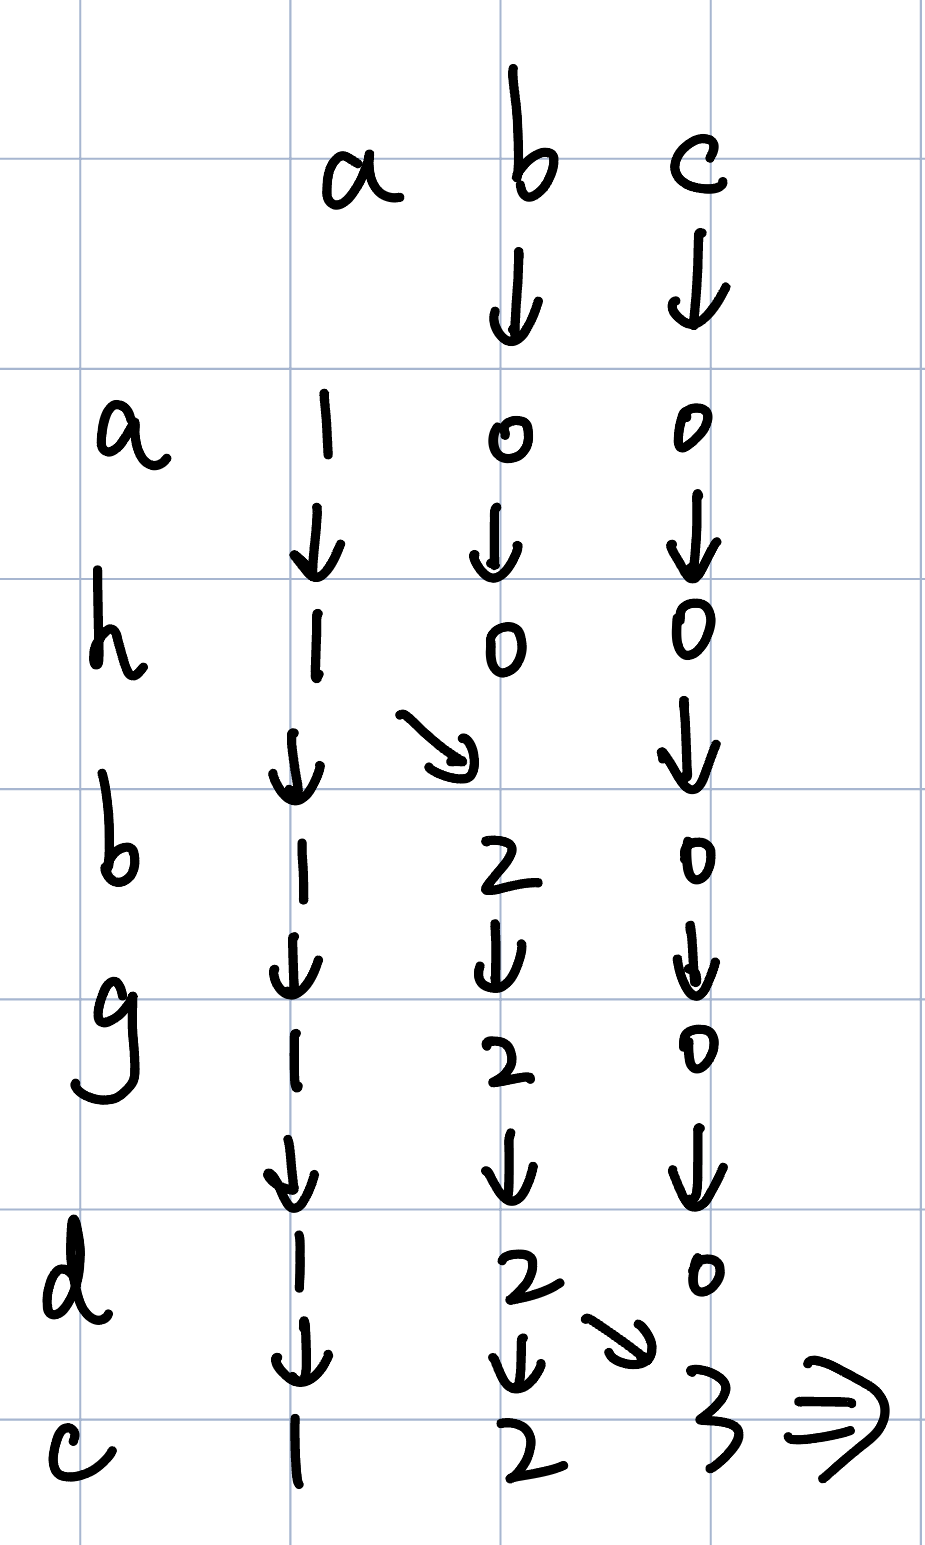 a b c
↓ ↓
a 1 0 0
↓ ↓ ↓
h 1 0 0
↓ ↘ ↓
b 1 2 0
↓ ↓ ↓
g 1 2 0
↓ ↓ ↓
d 1 2 0
↓ ↓ ↘
c 1 2 3 ⇒